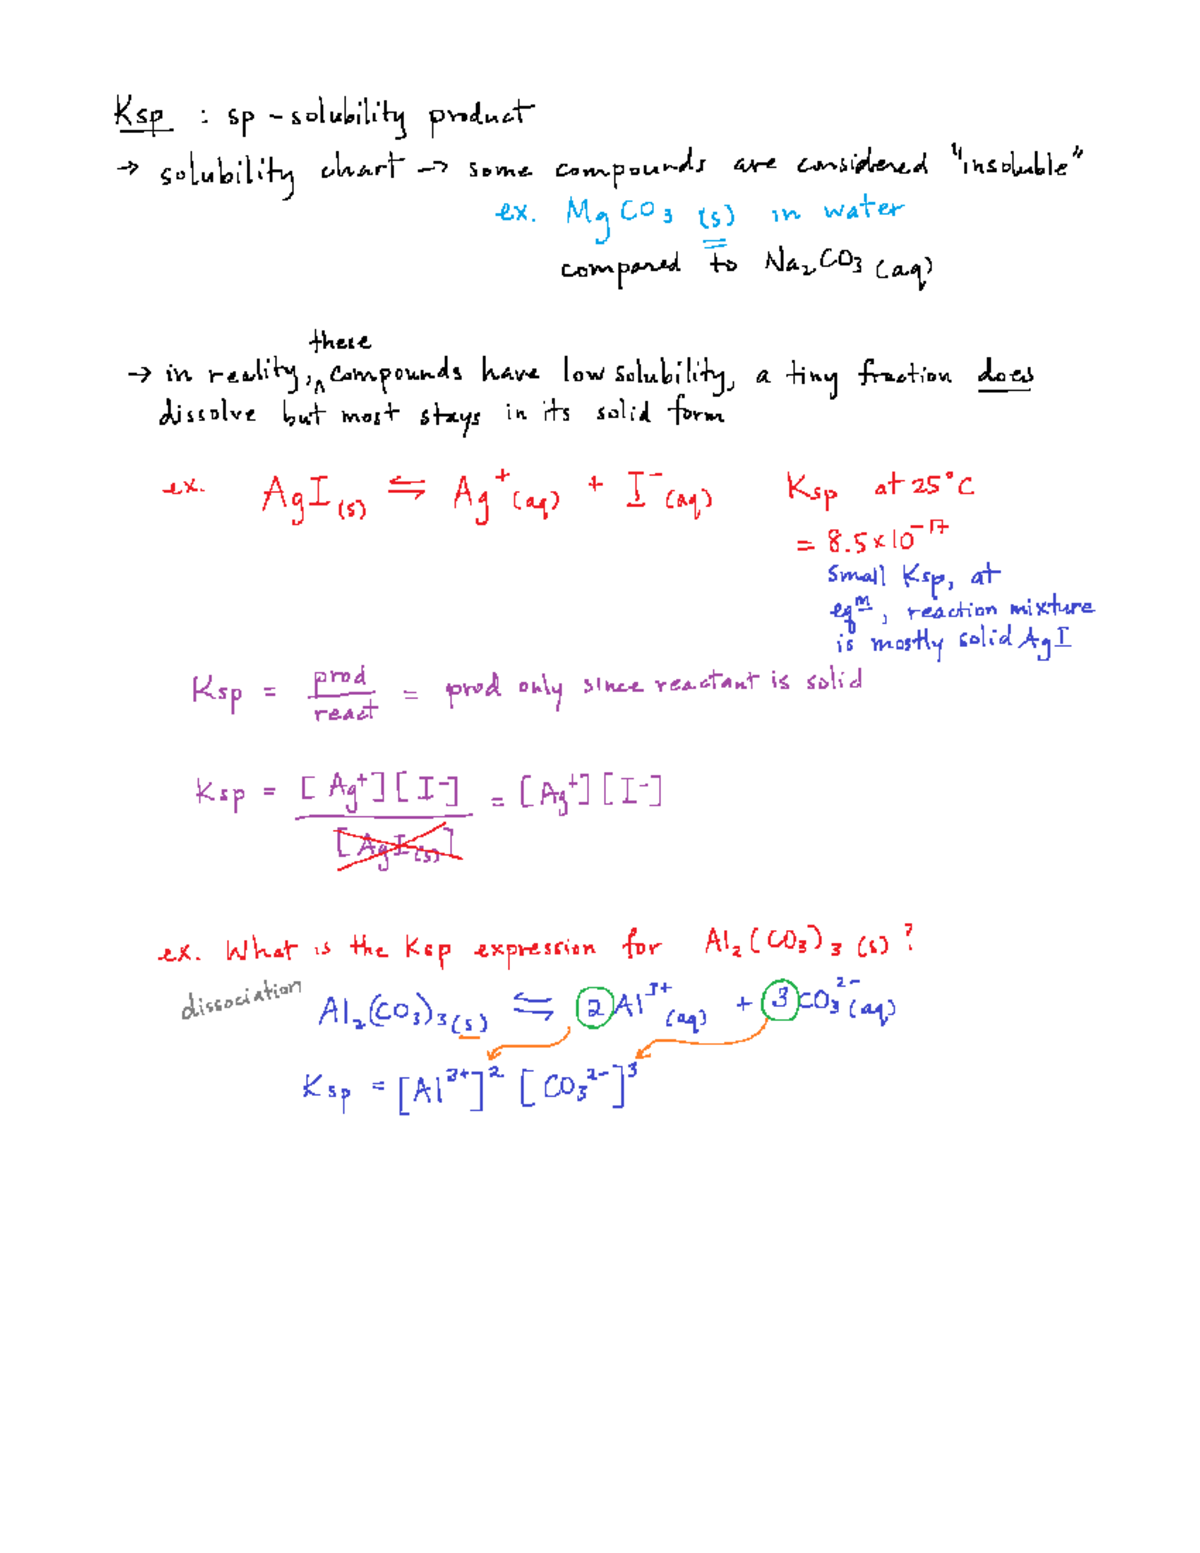 Ksp : sp - solubility product
→ solubility chart → some compounds are considered "insoluble"
ex. MgCO₃ (s) in water
compared to Na₂CO₃ (aq)
these
→ in reality, ^ compounds have low solubility, a tiny fraction does
dissolve but most stays in its solid form
ex. AgI(s) ⇌ Ag⁺(aq) + I⁻(aq) Ksp at 25°C
= 8.5×10⁻¹⁷
small Ksp, at
eqᵐ, reaction mixture
is mostly solid AgI
Ksp = prod/react = prod only since reactant is solid
Ksp = [Ag⁺][I⁻]/[AgI(s)] = [Ag⁺][I⁻]
ex. What is the Ksp expression for Al₂(CO₃)₃ (s)?
dissociation Al₂(CO₃)₃(s) ⇌ 2Al³⁺(aq) + 3CO₃²⁻(aq)
Ksp = [Al³⁺]² [CO₃²⁻]³